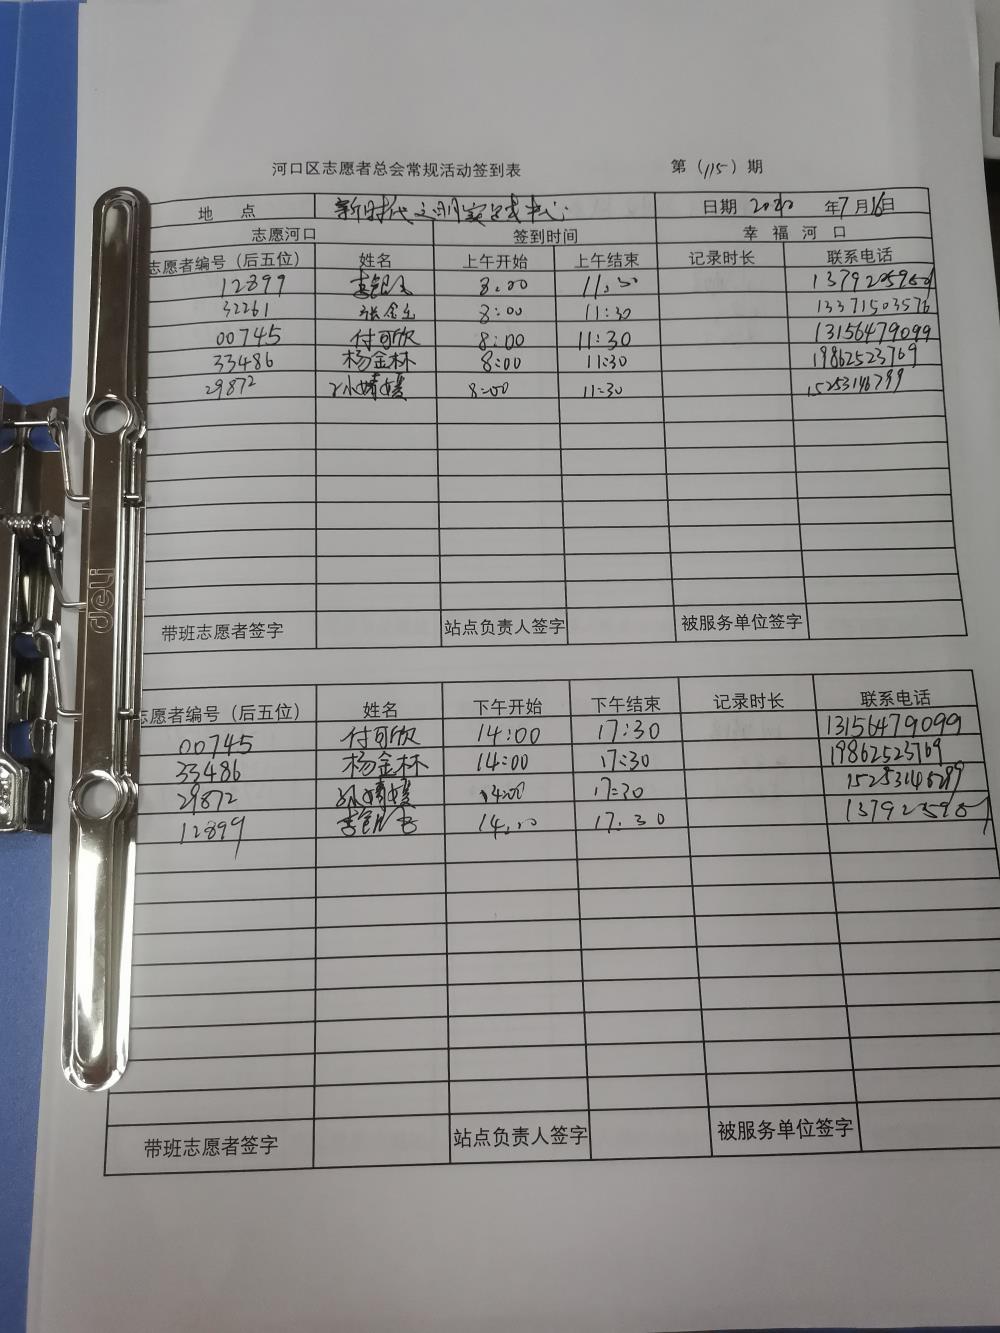 河口区志愿者总会常规活动签到表 第（115）期
地 点 新时代文明实践中心 日期 2020 年7月16日
志愿河口 签到时间 幸 福 河 口
志愿者编号（后五位） 姓名 上午开始 上午结束 记录时长 联系电话
12899 8:00 11:30
32261 8:00 11:30 13371503576
00745 付可欣 8:00 11:30 13156479099
33486 杨金林 8:00 11:30 19862523769
29872 孙婧媛 8:00 11:30
带班志愿者签字 站点负责人签字 被服务单位签字
志愿者编号（后五位） 姓名 下午开始 下午结束 记录时长 联系电话
00745 付可欣 14:00 17:30 13156479099
33486 杨金林 14:00 17:30 19862523769
29872 孙婧媛 14:00 17:30
12899 14:00 17:30
带班志愿者签字 站点负责人签字 被服务单位签字
deli